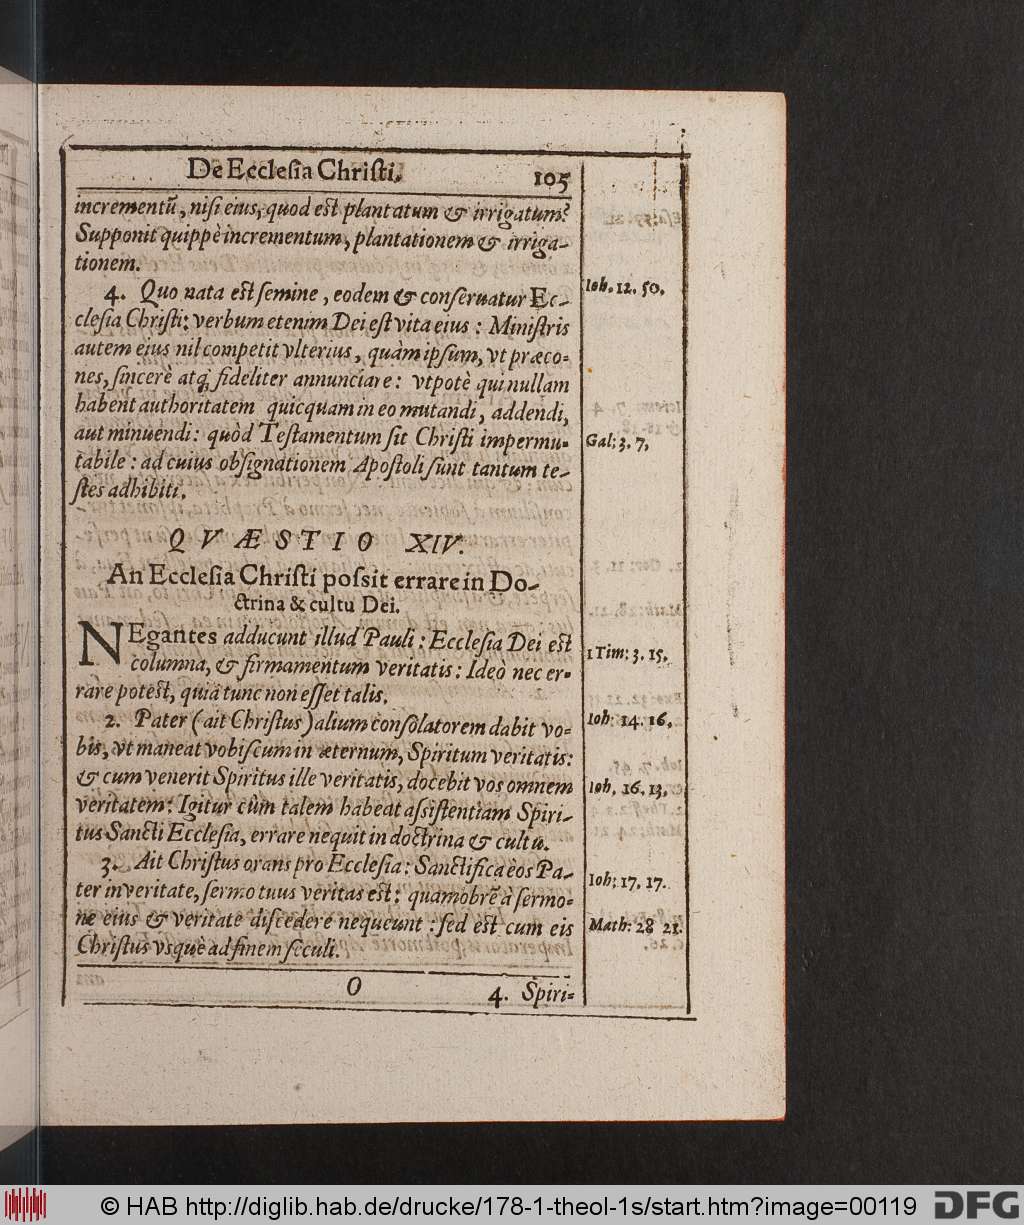 De Ecclesia Christi. 105
incrementū, nisi eius, quod est plantatum & irrigatum?
Supponit quippè incrementum, plantationem & irriga-
tionem.
4. Quo nata est semine, eodem & conseruatur Ec- Ioh. 12. 50.
clesia Christi: verbum etenim Dei est vita eius: Ministris
autem eius nil competit vlterius, quàm ipsum, vt præco-
nes, sincerè atq; fideliter annunciare: vtpotè qui nullam
habent authoritatem quicquam in eo mutandi, addendi,
aut minuendi: quòd Testamentum sit Christi impermu- Gal: 3. 7,
tabile: ad cuius obsignationem Apostoli sunt tantum te-
stes adhibiti.
QVÆSTIO XIV.
An Ecclesia Christi possit errare in Do-
ctrina & cultu Dei.
NEgantes adducunt illud Pauli: Ecclesia Dei est
columna, & firmamentum veritatis: Ideò nec er- 1 Tim: 3. 15.
rare potest, quia tunc non esset talis.
2. Pater (ait Christus) alium consolatorem dabit vo- Ioh: 14. 16,
bis, vt maneat vobiscum in æternum, Spiritum veritatis:
& cum venerit Spiritus ille veritatis, docebit vos omnem Ioh, 16. 13,
veritatem: Igitur cùm talem habeat assistentiam Spiri-
tus Sancti Ecclesia, errare nequit in doctrina & cultu.
3. Ait Christus orans pro Ecclesia: Sanctifica eos Pa-
ter in veritate, sermo tuus veritas est: quamobrē à sermo- Ioh: 17. 17.
ne eius & veritate discedere nequeunt: sed est cum eis Math: 28 21.
Christus vsquè ad finem seculi.
O 4. Spiri-
© HAB http://diglib.hab.de/drucke/178-1-theol-1s/start.htm?image=00119 DFG